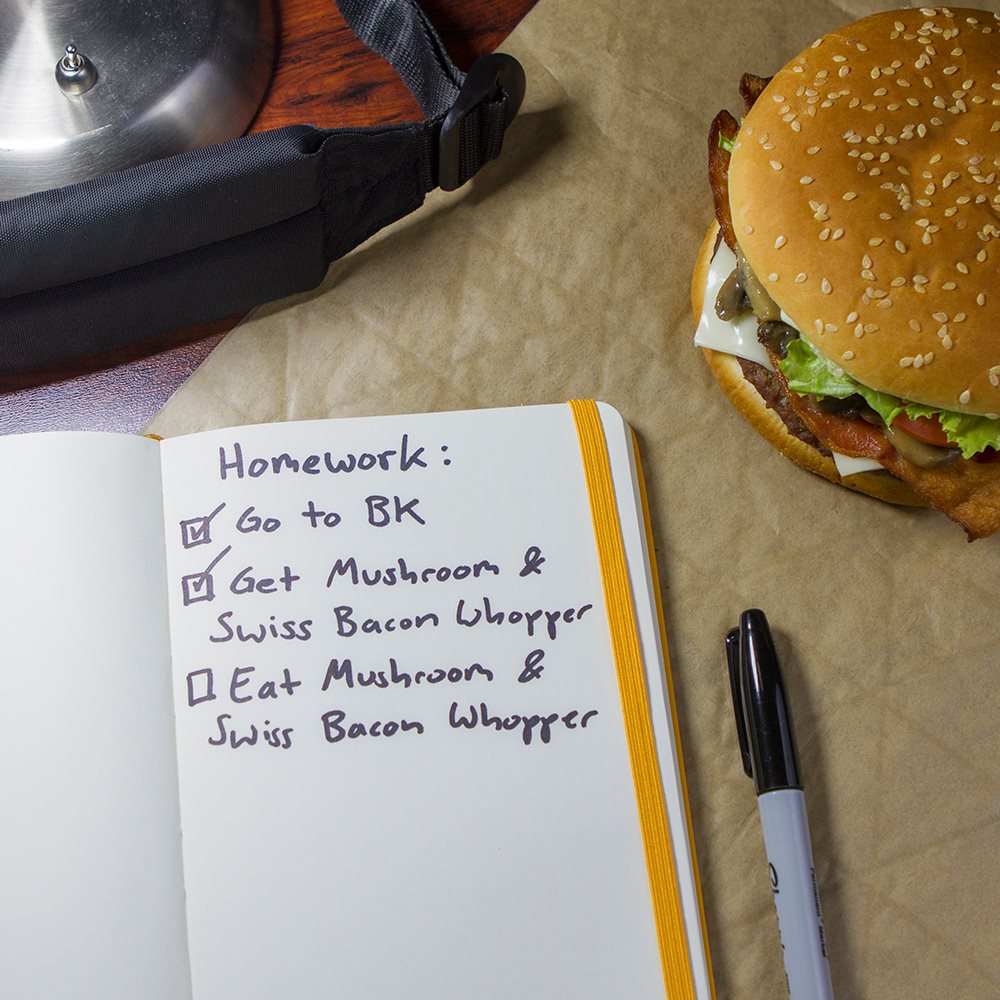 Homework:
☑ Go to BK
☑ Get Mushroom &
Swiss Bacon Whopper
☐ Eat Mushroom &
Swiss Bacon Whopper